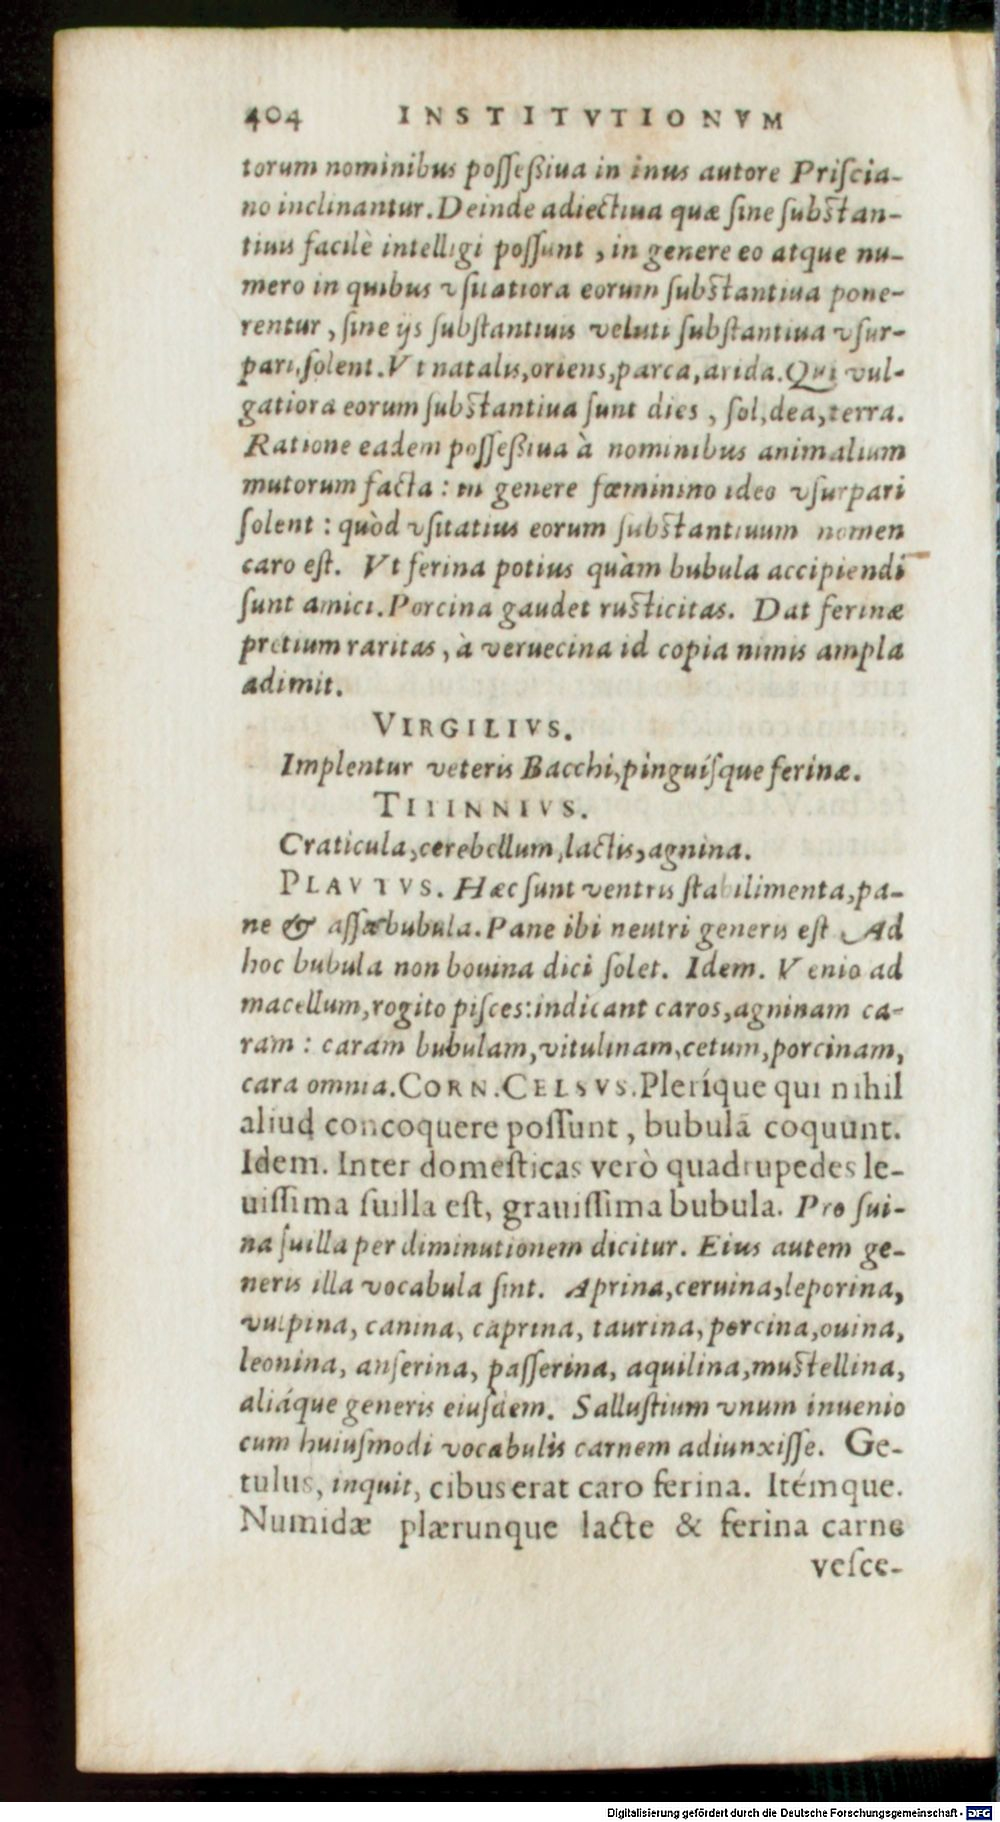 404 INSTITVTIONVM
torum nominibus posseßiua in inus autore Priscia-
no inclinantur. Deinde adiectiua quæ sine substan-
tiuis facilè intelligi possunt, in genere eo atque nu-
mero in quibus vsitatiora eorum substantiua pone-
rentur, sine ijs substantiuis veluti substantiua vsur-
pari, solent. Vt natalis, oriens, parca, arida. Qui vul-
gatiora eorum substantiua sunt dies, sol, dea, terra.
Ratione eadem posseßiua à nominibus animalium
mutorum facta: in genere fœminino ideo vsurpari
solent: quòd vsitatius eorum substantiuum nomen
caro est. Vt ferina potius quàm bubula accipiendi
sunt amici. Porcina gaudet rusticitas. Dat ferinæ
pretium raritas, à veruecina id copia nimis ampla
adimit.
VIRGILIVS.
Implentur veteris Bacchi, pinguísque ferinæ.
TITINNIVS.
Craticula, cerebellum, lactis, agnina.
PLAVTVS. Hæc sunt ventris stabilimenta, pa-
ne & assæ bubula. Pane ibi neutri generis est Ad
hoc bubula non bouina dici solet. Idem. Venio ad
macellum, rogito pisces: indicant caros, agninam ca-
ram: caram bubulam, vitulinam, cetum, porcinam,
cara omnia. CORN. CELSVS. Pleríque qui nihil
aliud concoquere possunt, bubulā coquunt.
Idem. Inter domesticas verò quadrupedes le-
uissima suilla est, grauissima bubula. Pro sui-
na suilla per diminutionem dicitur. Eius autem ge-
neris illa vocabula sint. Aprina, ceruina, leporina,
vulpina, canina, caprina, taurina, porcina, ouina,
leonina, anserina, passerina, aquilina, mustellina,
aliáque generis eiusdem. Sallustium vnum inuenio
cum huiusmodi vocabulis carnem adiunxisse. Ge-
tulus, inquit, cibus erat caro ferina. Itémque.
Numidæ plærunque lacte & ferina carne
vesce-
Digitalisierung gefördert durch die Deutsche Forschungsgemeinschaft - DFG